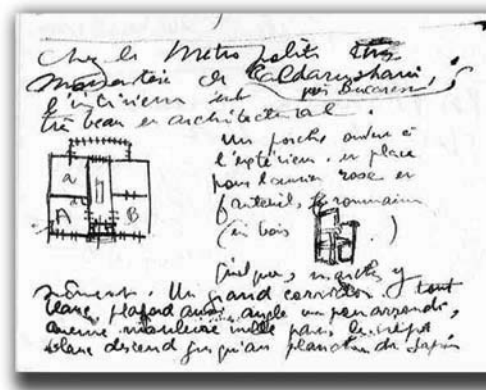 Chez le Metropolite
monastère de Caldarushani,
près Bucarest
l'intérieur est
très beau et architectural.
Un porche ouvert à
l'extérieur. en place
pour coussins rose et
fauteuil, roumain
(en bois .)
a
a
A B
quelques marches y
mènent. Un grand corridor tout
blanc, plafond aussi, angle un peu arrondi,
aucune moulure nulle part, le crépi
blanc descend jusqu'au plancher de sapin